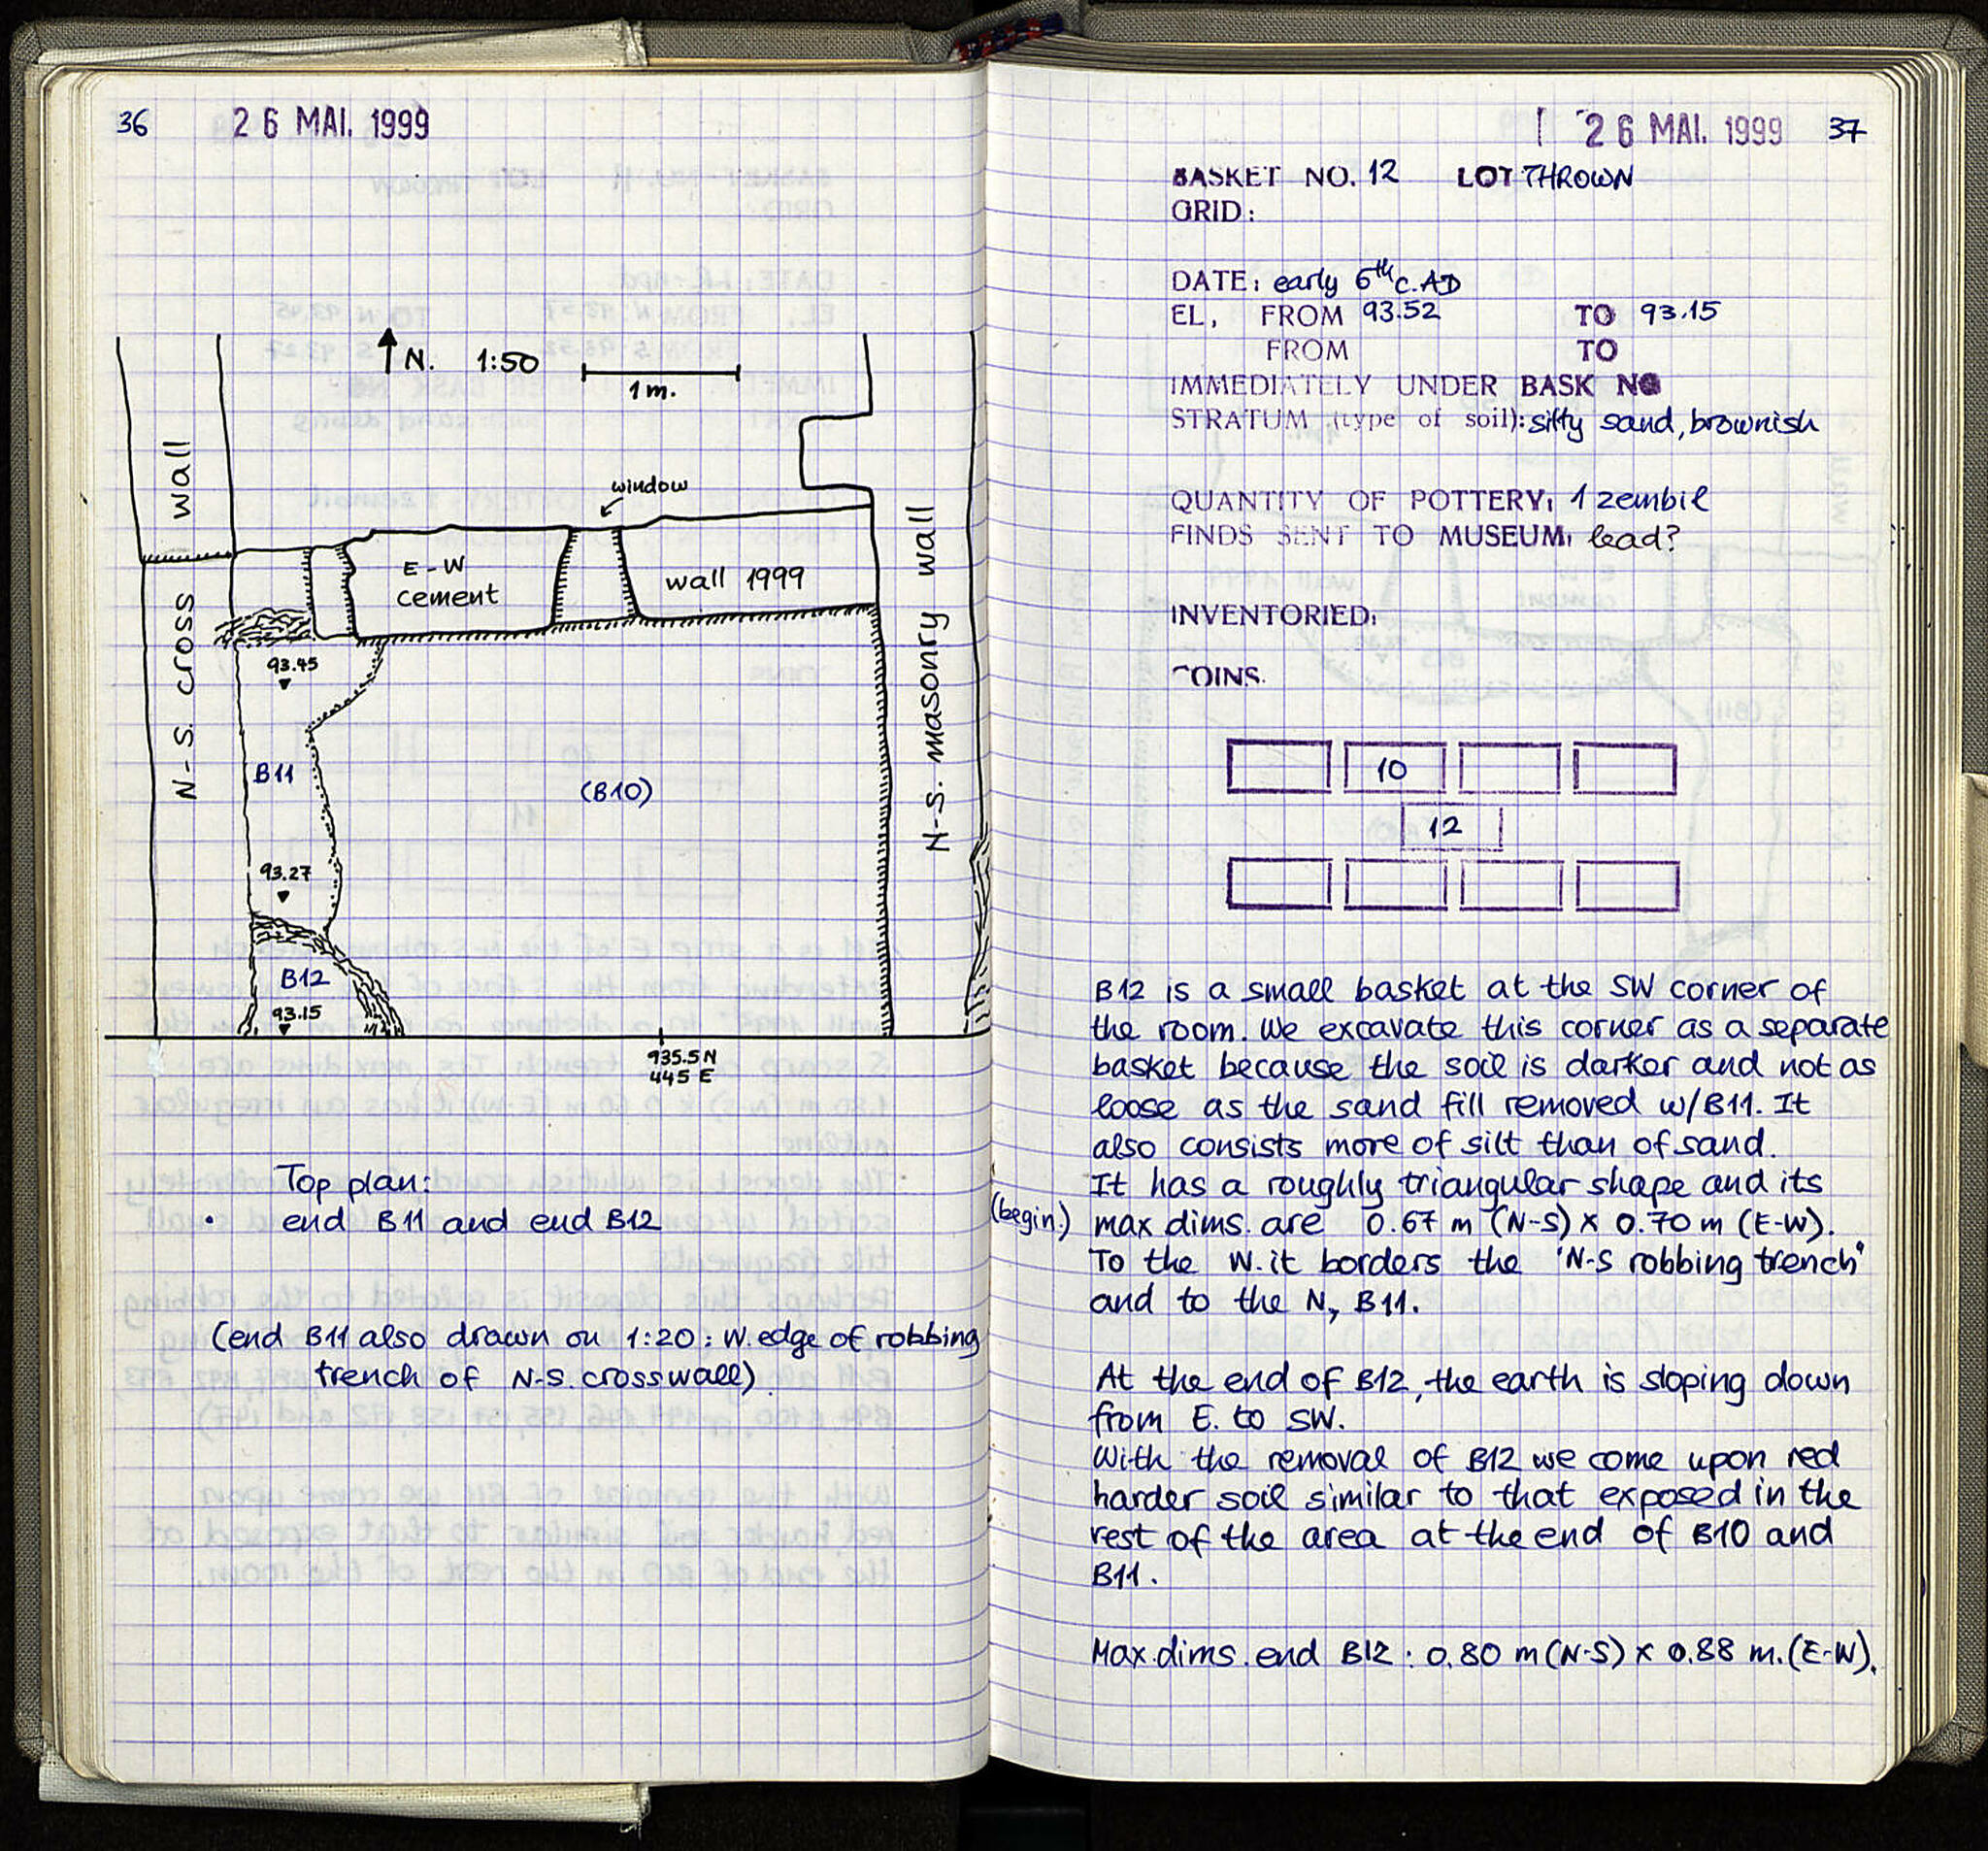 36
26 MAI. 1999
N. 1:50
1 m.
window
wall
E-W
cement
wall 1999
N-S. cross
N-S. masonry wall
93.45
B11
(B10)
93.27
B12
93.15
935.5 N
445 E
Top plan:
end B11 and end B12
(end B11 also drawn on 1:20: W. edge of robbing
trench of N-S. crosswall).
26 MAI. 1999
37
BASKET NO. 12 LOT THROWN
GRID:
DATE: early 6th c. AD
EL, FROM 93.52 TO 93.15
FROM TO
IMMEDIATELY UNDER BASK NO
STRATUM (type of soil): silty sand, brownish
QUANTITY OF POTTERY: 1 zembil
FINDS SENT TO MUSEUM: lead?
INVENTORIED:
COINS.
10
12
B12 is a small basket at the SW corner of
the room. We excavate this corner as a separate
basket because the soil is darker and not as
loose as the sand fill removed w/B11. It
also consists more of silt than of sand.
It has a roughly triangular shape and its
(begin.) max dims. are 0.67 m (N-S) x 0.70 m (E-W).
To the W. it borders the 'N-S robbing trench'
and to the N, B11.
At the end of B12, the earth is sloping down
from E. to SW.
With the removal of B12 we come upon red
harder soil similar to that exposed in the
rest of the area at the end of B10 and
B11.
Max. dims. end B12: 0.80 m (N-S) x 0.88 m. (E-W).